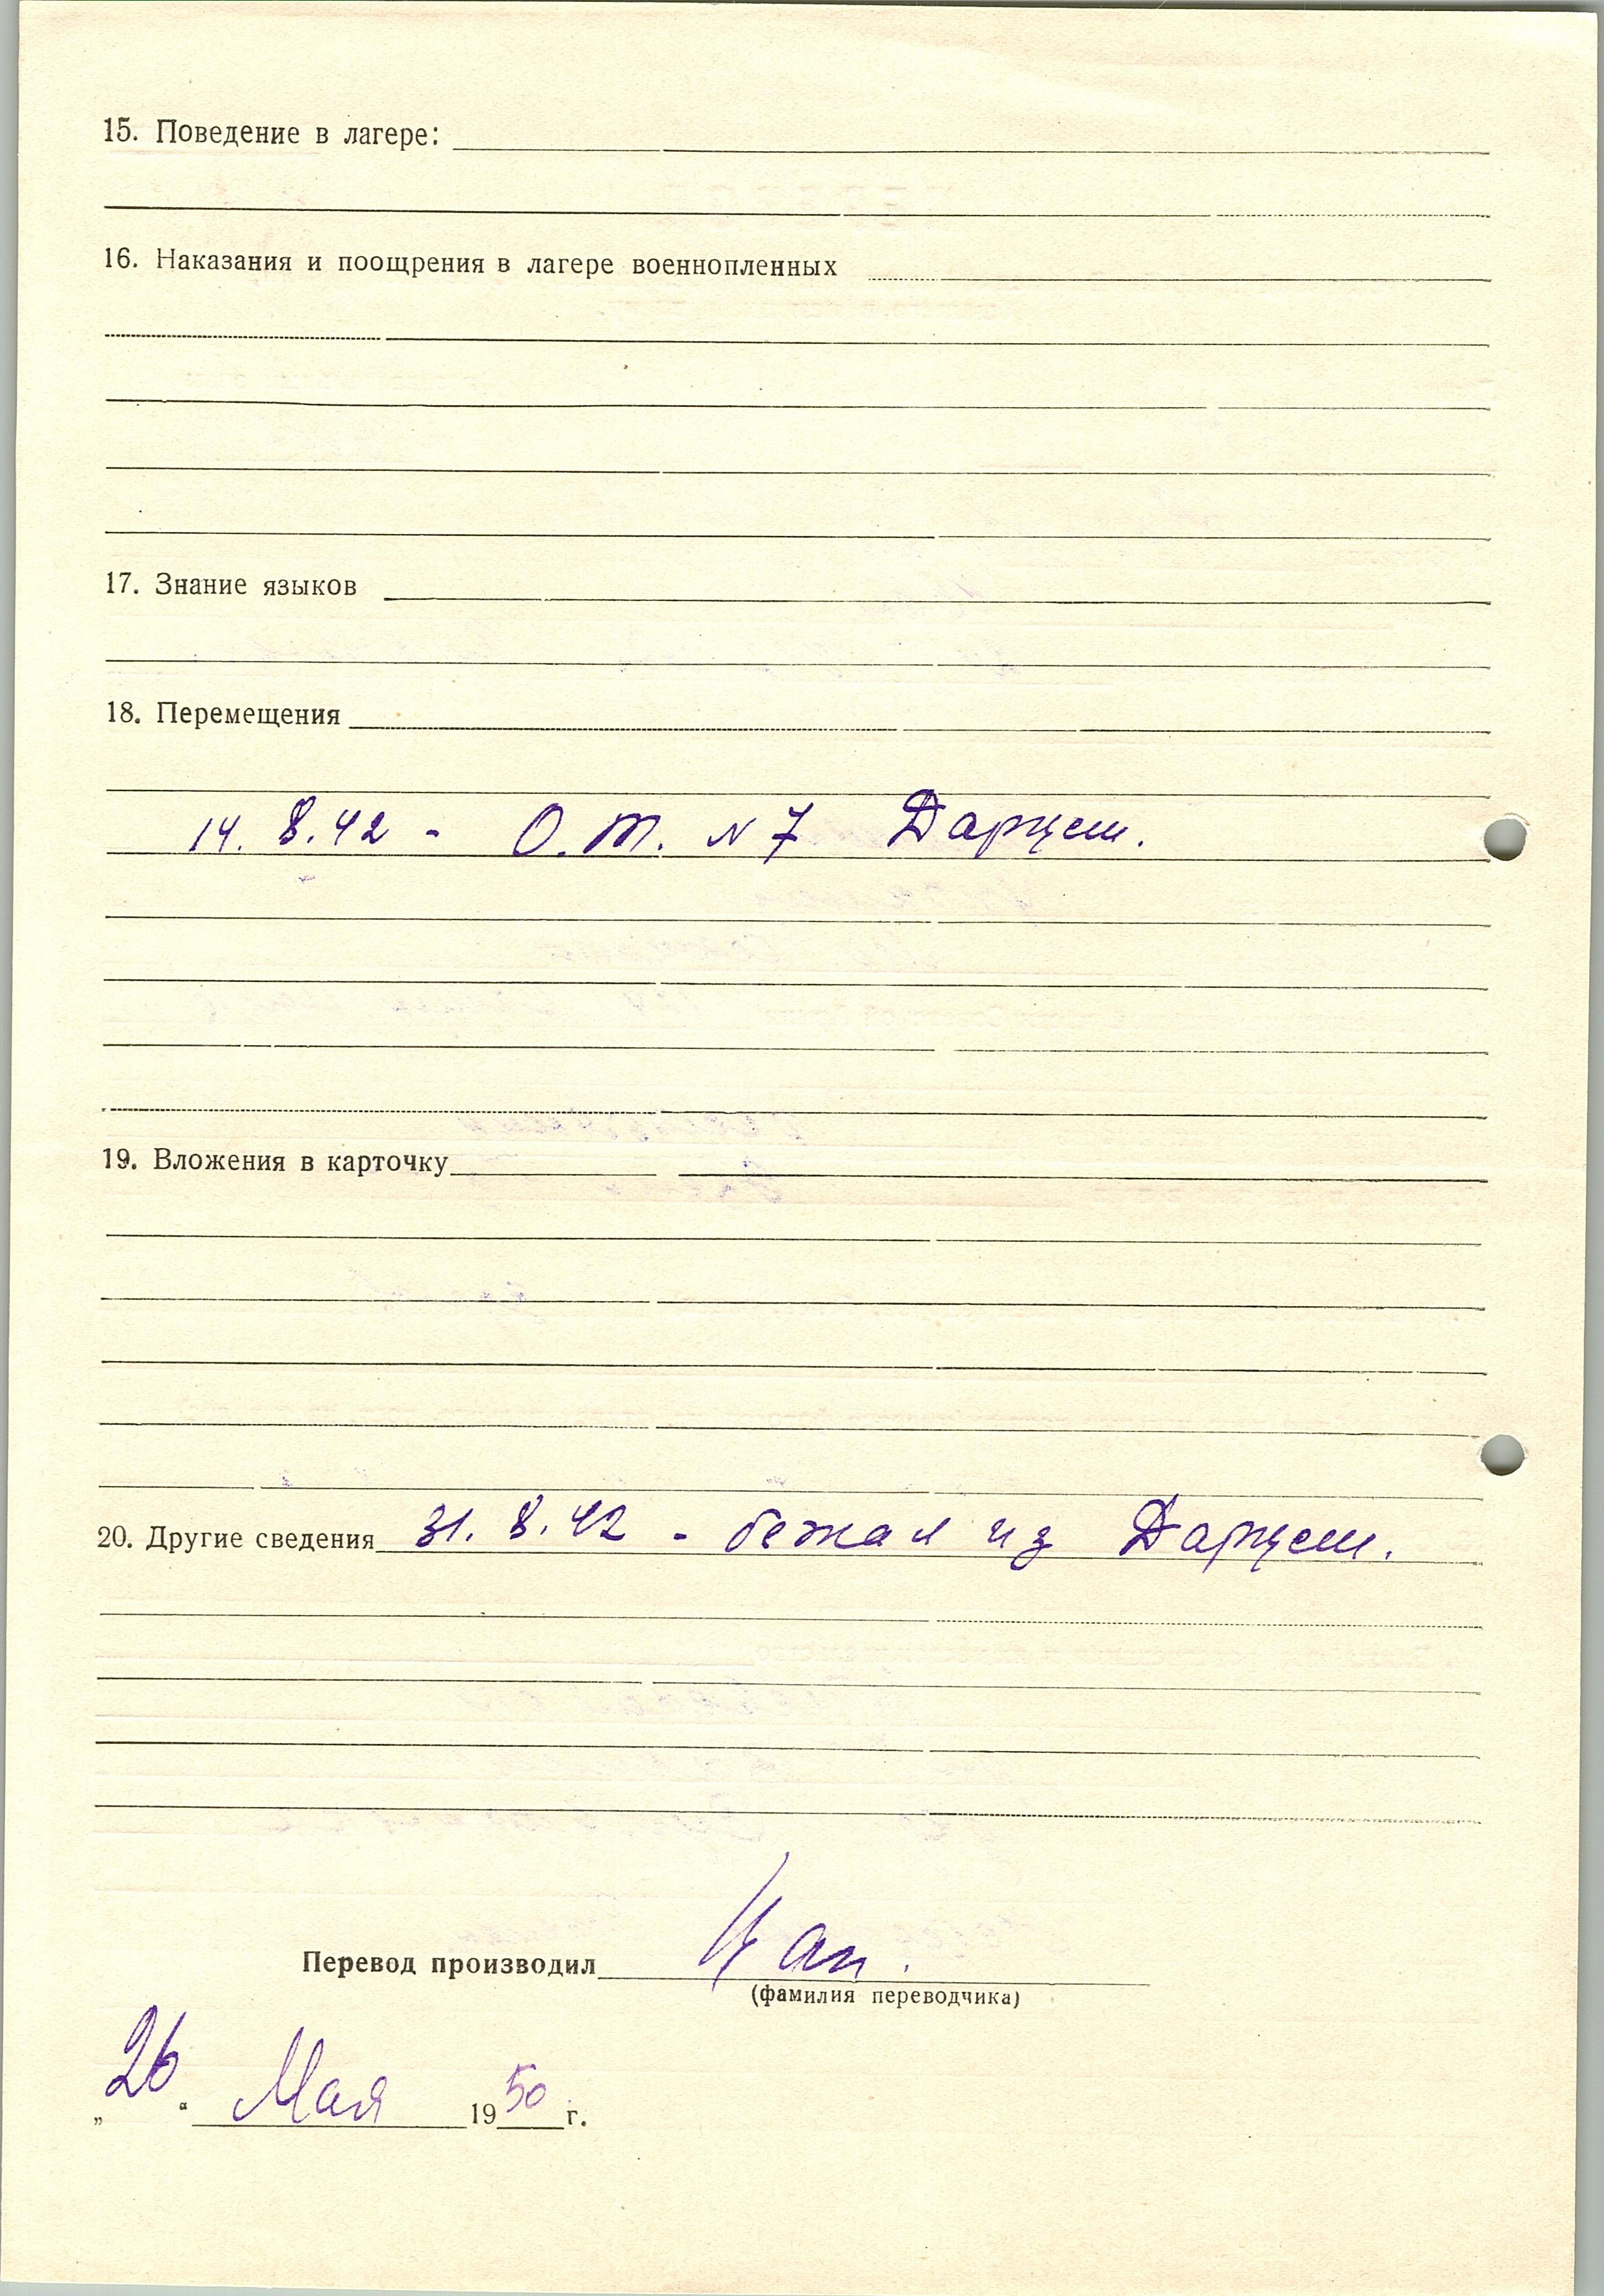 15. Поведение в лагере:
16. Наказания и поощрения в лагере военнопленных
17. Знание языков
18. Перемещения
14. 8.42 - О.Т. N 7 Дарцем.
19. Вложения в карточку
20. Другие сведения 31. 8. 42 - бежал из Дарцем.
Перевод производил
(фамилия переводчика)
„26“ Мая 1950 г.